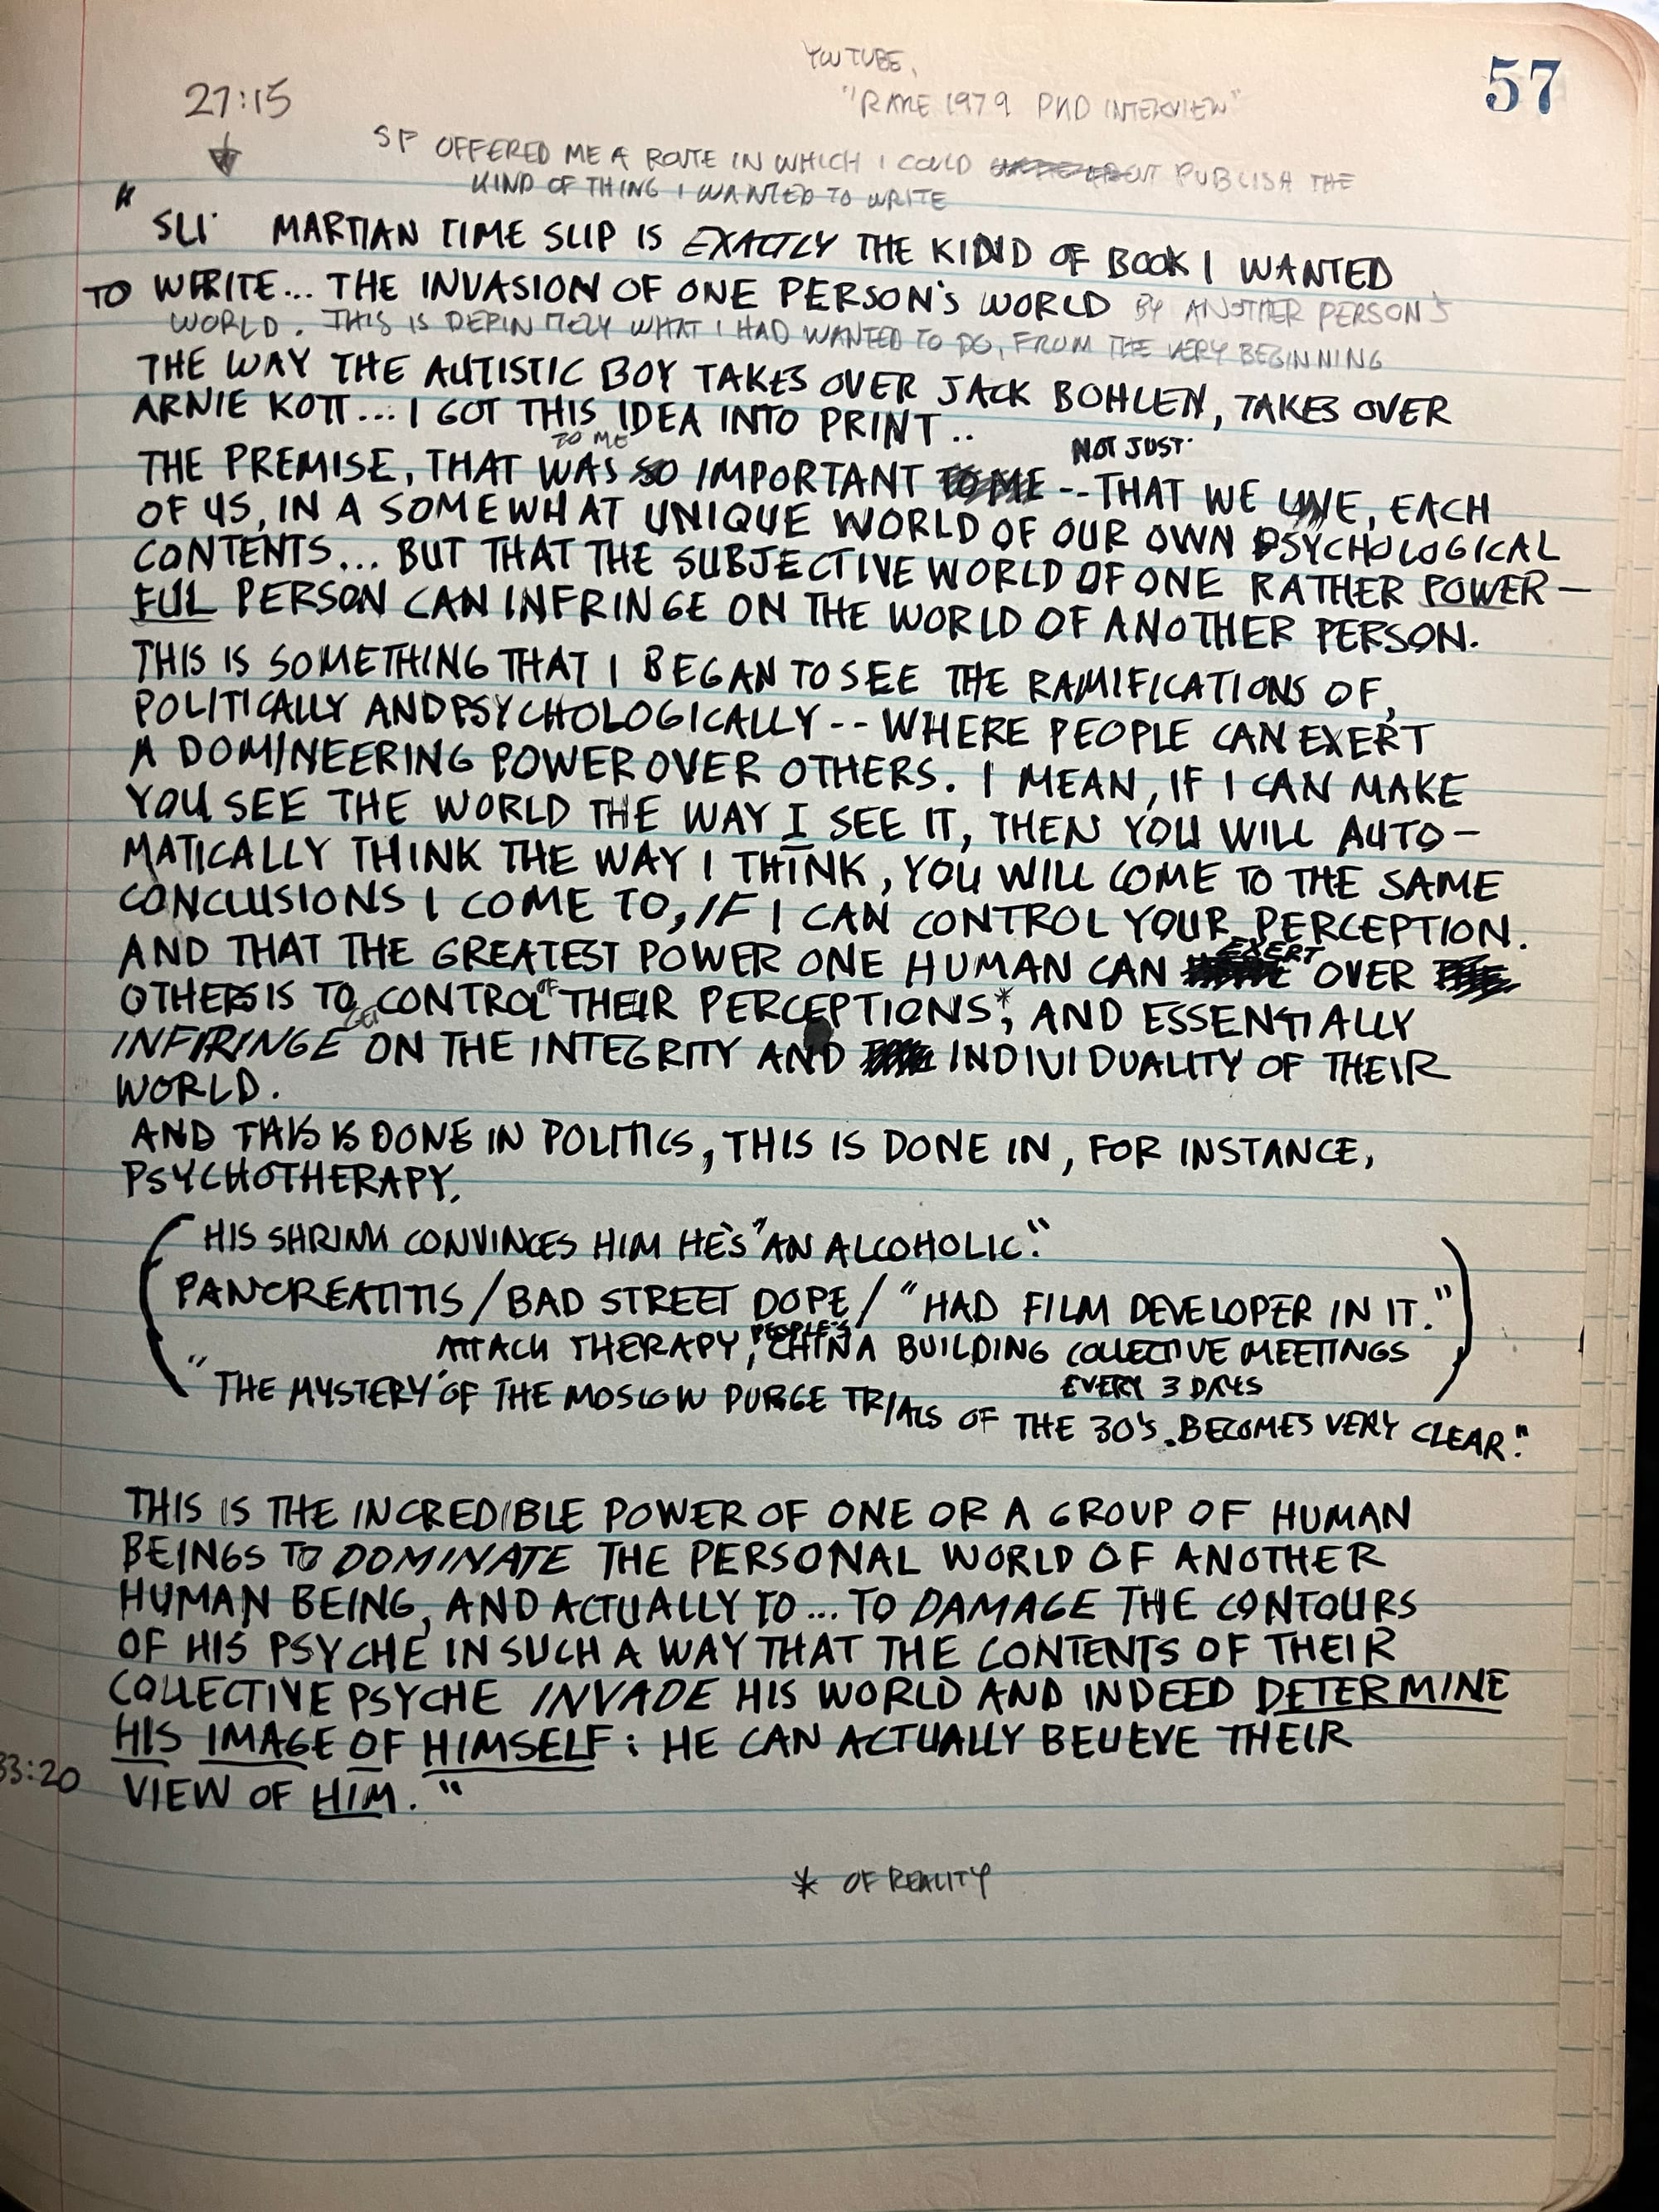 YOUTUBE,
57
27:15
"RARE 1979 PKD INTERVIEW"
SF OFFERED ME A ROUTE IN WHICH I COULD PUBLISH THE
KIND OF THING I WANTED TO WRITE
"
SLI MARTIAN TIME SLIP IS EXACTLY THE KIND OF BOOK I WANTED
TO WRITE... THE INVASION OF ONE PERSON'S WORLD BY ANOTHER PERSON'S
WORLD. THIS IS DEFINITELY WHAT I HAD WANTED TO DO, FROM THE VERY BEGINNING
THE WAY THE AUTISTIC BOY TAKES OVER JACK BOHLEN, TAKES OVER
ARNIE KOTT... I GOT THIS IDEA INTO PRINT..
TO ME NOT JUST
THE PREMISE, THAT WAS SO IMPORTANT TO ME -- THAT WE LIVE, EACH
OF US, IN A SOMEWHAT UNIQUE WORLD OF OUR OWN PSYCHOLOGICAL
CONTENTS... BUT THAT THE SUBJECTIVE WORLD OF ONE RATHER POWER-
FUL PERSON CAN INFRINGE ON THE WORLD OF ANOTHER PERSON.
THIS IS SOMETHING THAT I BEGAN TO SEE THE RAMIFICATIONS OF,
POLITICALLY AND PSYCHOLOGICALLY -- WHERE PEOPLE CAN EXERT
A DOMINEERING POWER OVER OTHERS. I MEAN, IF I CAN MAKE
YOU SEE THE WORLD THE WAY I SEE IT, THEN YOU WILL AUTO-
MATICALLY THINK THE WAY I THINK, YOU WILL COME TO THE SAME
CONCLUSIONS I COME TO, IF I CAN CONTROL YOUR PERCEPTION.
EXERT
AND THAT THE GREATEST POWER ONE HUMAN CAN OVER
OF
OTHERS IS TO CONTROL THEIR PERCEPTIONS*, AND ESSENTIALLY
INFIRINGE ON THE INTEGRITY AND INDIVIDUALITY OF THEIR
WORLD.
AND THIS IS DONE IN POLITICS, THIS IS DONE IN, FOR INSTANCE,
PSYCHOTHERAPY.
(HIS SHRINK CONVINCES HIM HE'S "AN ALCOHOLIC."
PANCREATITIS / BAD STREET DOPE / "HAD FILM DEVELOPER IN IT.")
PEOPLE'S
ATTACK THERAPY, CHINA BUILDING COLLECTIVE MEETINGS
EVERY 3 DAYS
"THE MYSTERY OF THE MOSCOW PURGE TRIALS OF THE 30'S. BECOMES VERY CLEAR."
THIS IS THE INCREDIBLE POWER OF ONE OR A GROUP OF HUMAN
BEINGS TO DOMINATE THE PERSONAL WORLD OF ANOTHER
HUMAN BEING, AND ACTUALLY TO... TO DAMAGE THE CONTOURS
OF HIS PSYCHE IN SUCH A WAY THAT THE CONTENTS OF THEIR
COLLECTIVE PSYCHE INVADE HIS WORLD AND INDEED DETERMINE
HIS IMAGE OF HIMSELF: HE CAN ACTUALLY BELIEVE THEIR
33:20 VIEW OF HIM."
* OF REALITY